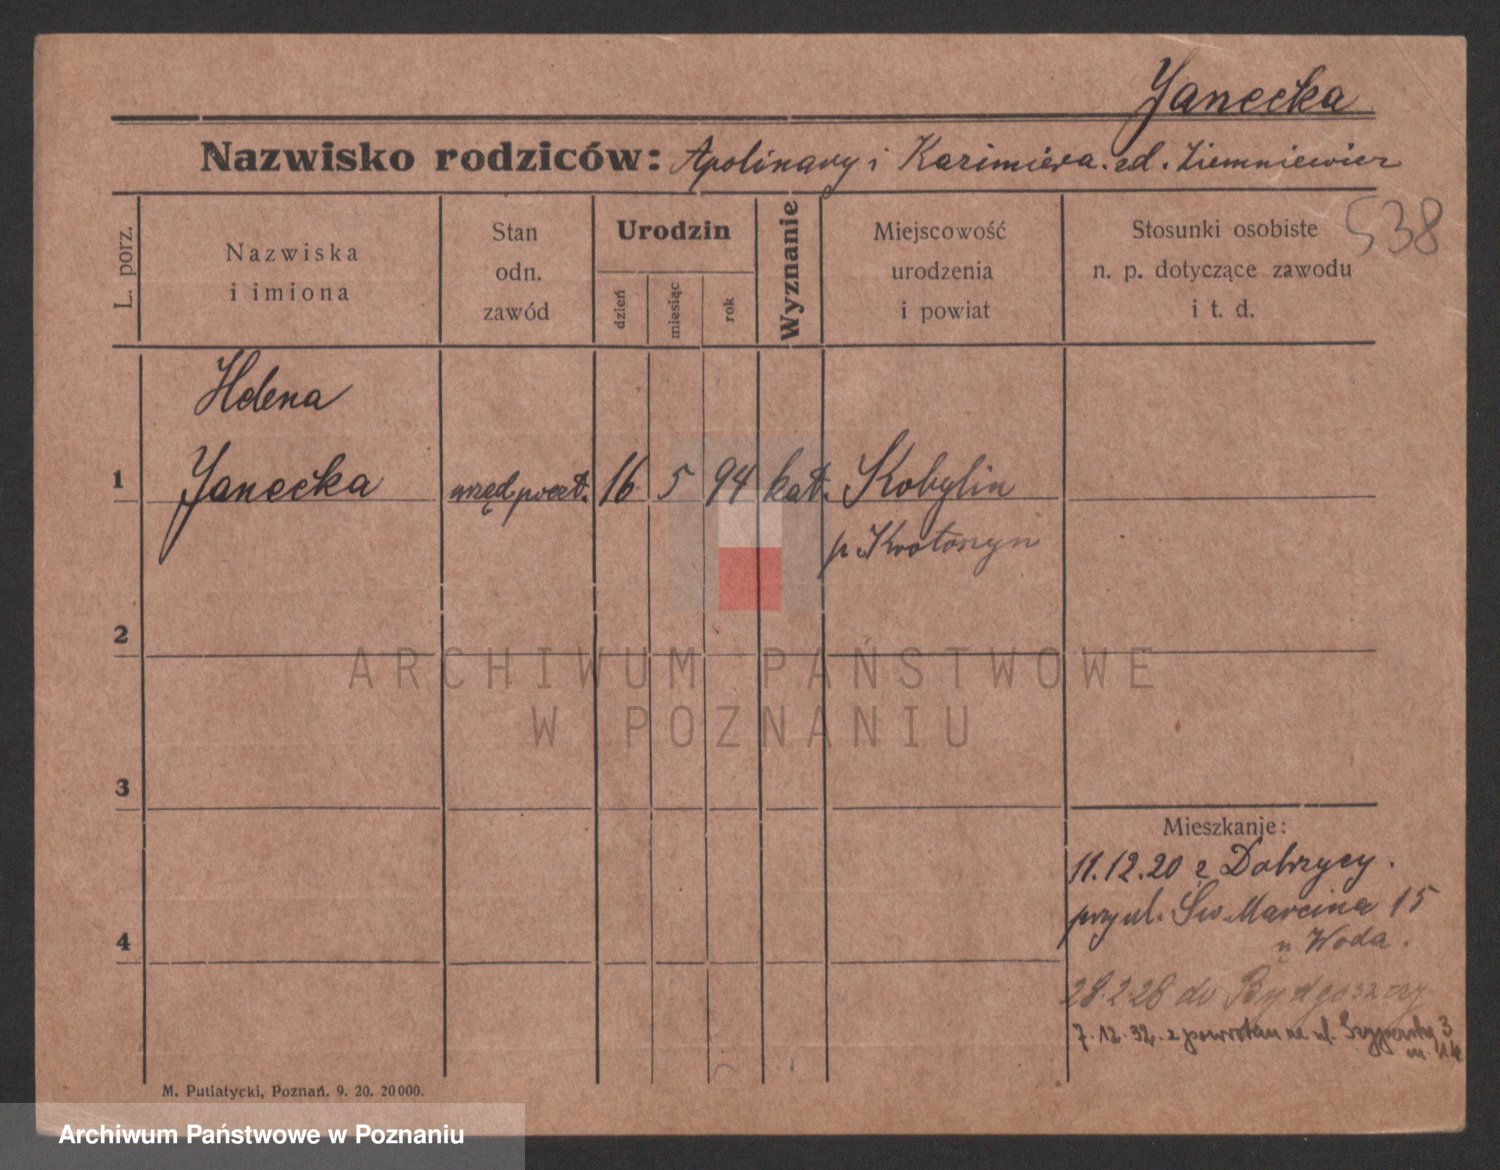 Janecka
Nazwisko rodziców: Apolinary i Kazimiera zd. Ziemniewicz
538
L. porz.
Nazwiska
i imiona
Stan
odn.
zawód
Urodzin
dzień
miesiąc
rok
Wyznanie
Miejscowość
urodzenia
i powiat
Stosunki osobiste
n. p. dotyczące zawodu
i t. d.
Helena
1 Janecka urzęd. poczt. 16 5 94 kat. Kobylin
p. Krotoszyn
2
ARCHIWUM PAŃSTWOWE
W POZNANIU
3
Mieszkanie:
11.12.20 z Dobrzycy.
przy ul. Św. Marcina 15
4
u Woda.
28.2.28 do Bydgoszczy
7.12.32. z powrotem na ul. 3
m. 14
M. Putiatycki, Poznań. 9. 20. 20000.
Archiwum Państwowe w Poznaniu